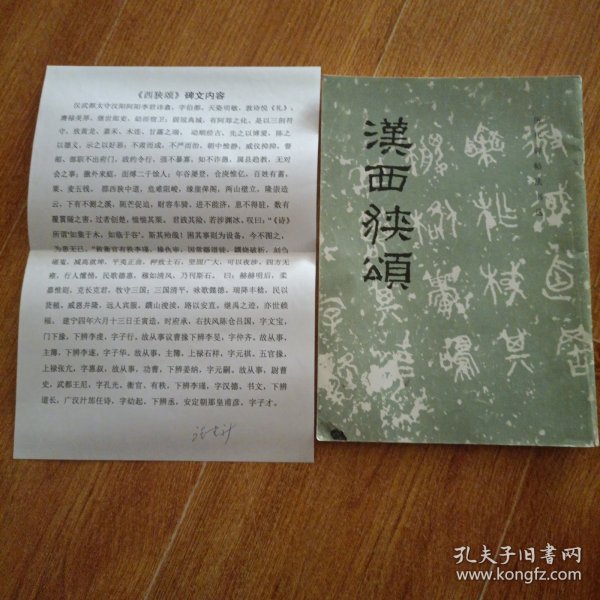 《西狭颂》碑文内容
汉武都太守汉阳阿阳李君讳翕，字伯都，天姿明敏，敦诗悦《礼》，
膺禄美厚，继世郎吏，幼而宿卫，弱冠典城，有阿郑之化，是以三剖符
守，致黄龙、嘉禾、木连、甘露之瑞。动顺经古，先之以博爱，陈之
以德义，示之以好恶，不肃而成，不严而治，朝中惟静，威仪抑抑，督
邮、部职不出府门，政约令行，强不暴寡，知不诈愚，属县趋教，无对
会之事；徼外来庭，面缚二千馀人；年谷屡登，仓庾惟亿，百姓有蓄，
粟、麦五钱。郡西狭中道，危难阻峻，缘崖俾阁，两山壁立，隆崇造
云，下有不测之溪，阸芒促迫，财容车骑，进不能济，息不得驻，数有
覆霣隧之害，过者创楚，惴惴其栗。君践其险，若涉渊冰，叹曰：“《诗》
所谓‘如集于木，如临于谷’，斯其殆哉！困其事则为设备，今不图之，
为患无已。”敕衡官有秩李瑾、掾仇审，因常繇道徒，鐉烧破析，刻臽
磪嵬，减高就埤，平夷正曲，柙致土石，坚固广大，可以夜涉，四方无
雍，行人懽悀，民歌德惠，穆如清风，乃刊斯石。曰：赫赫明后，柔
嘉惟则，克长克君，牧守三国；三国清平，咏歌懿德，瑞降丰稔，民以
货稙，威恩并隆，远人宾服，鐉山浚渎，路以安直，继禹之迹，亦世赖
福。建宁四年六月十三日壬寅造，时府丞，右扶风陈仓吕国，字文宝，
门下掾，下辨李虔，字子行，故从事议曹掾下辨李旻，字仲齐，故从事，
主簿，下辨李遂，字子华，故从事，主簿，上禄石祥，字元祺，五官掾，
上禄张亢，字惠叔，故从事，功曹，下辨姜纳，字元嗣，故从事，尉曹
史，武都王尼，字孔光，衡官，有秩，下辨李瑾，字汉德，书文，下辨
道长，广汉汁邡任诗，字幼起，下辨丞，安定朝那皇甫彦，字子才。
漢西狹頌
孔夫子旧书网
www.kongfz.com